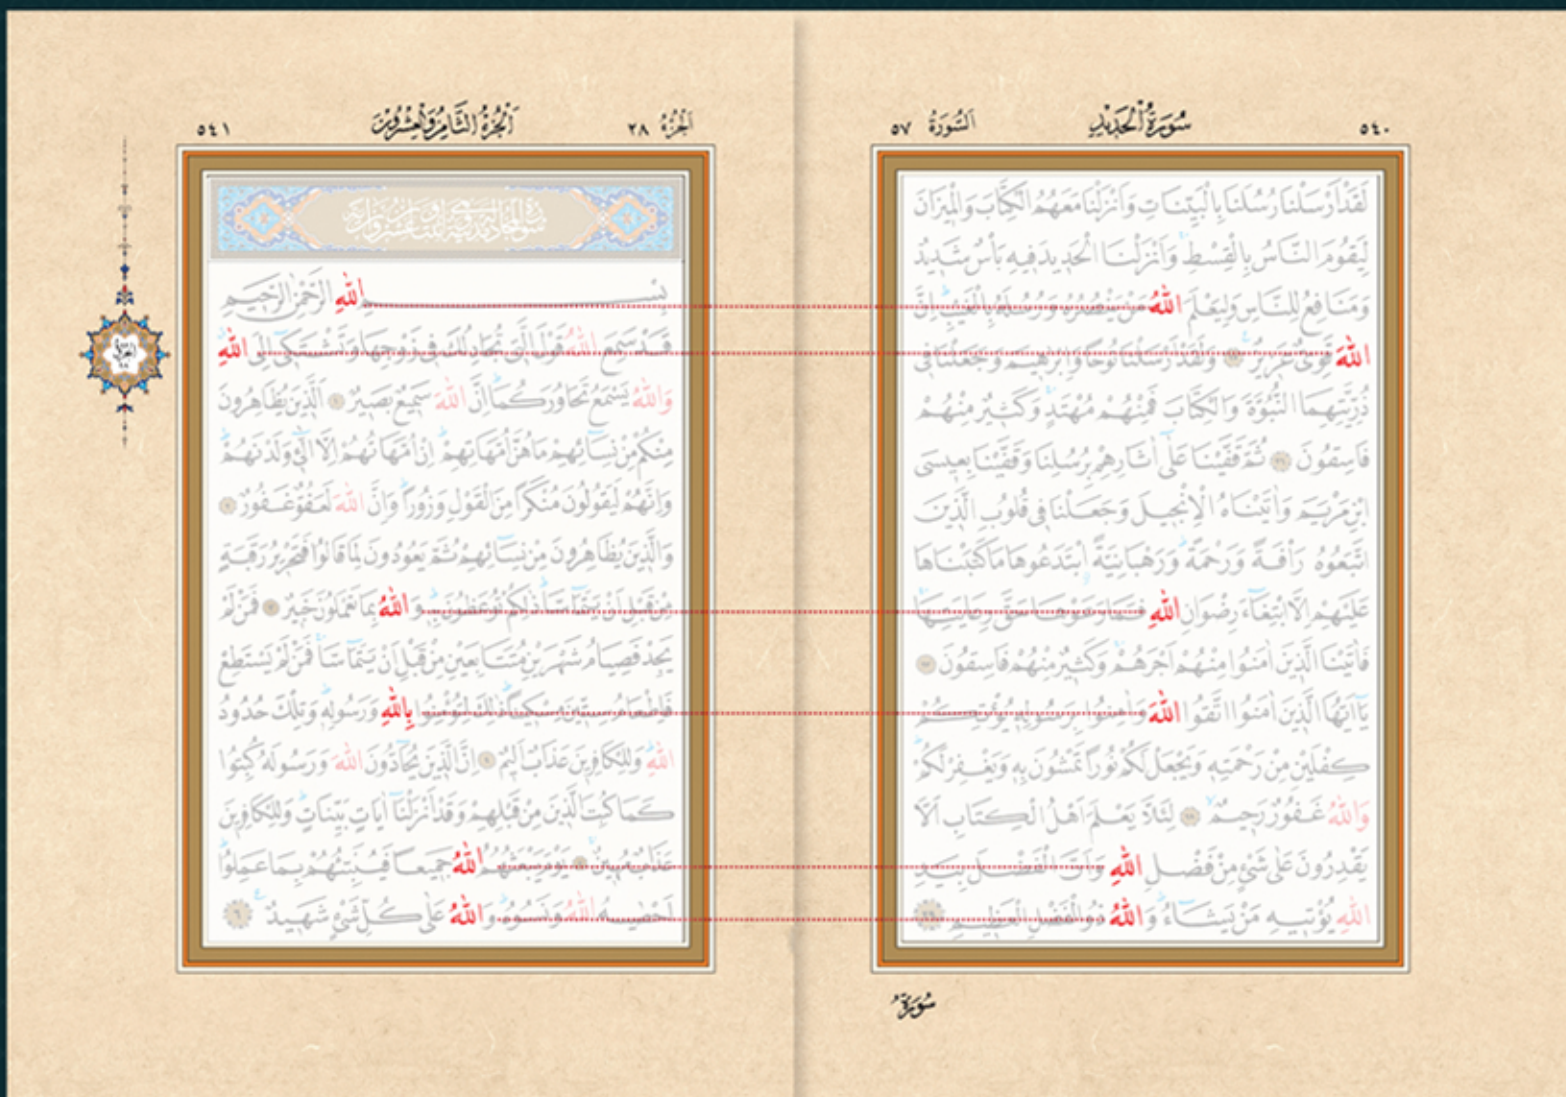 ٥٤٠ سُورَةُ الْحَدِيدِ السُّورَةُ ٥٧
لَقَدْ اَرْسَلْنَا رُسُلَنَا بِالْبَيِّنَاتِ وَاَنْزَلْنَا مَعَهُمُ الْكِتَابَ وَالْمِيزَانَ
لِيَقُومَ النَّاسُ بِالْقِسْطِ وَاَنْزَلْنَا الْحَدِيدَ فِيهِ بَأْسٌ شَدِيدٌ
وَمَنَافِعُ لِلنَّاسِ وَلِيَعْلَمَ اللّٰهُ مَنْ يَنْصُرُهُ وَرُسُلَهُ بِالْغَيْبِ اِنَّ
اللّٰهَ قَوِىٌّ عَزِيزٌ ٢٥ وَلَقَدْ اَرْسَلْنَا نُوحًا وَاِبْرٰهِيمَ وَجَعَلْنَا فِى
ذُرِّيَّتِهِمَا النُّبُوَّةَ وَالْكِتَابَ فَمِنْهُمْ مُهْتَدٍ وَكَثِيرٌ مِنْهُمْ
فَاسِقُونَ ٢٦ ثُمَّ قَفَّيْنَا عَلٰٓى اٰثَارِهِمْ بِرُسُلِنَا وَقَفَّيْنَا بِعِيسَى
ابْنِ مَرْيَمَ وَاٰتَيْنَاهُ الْاِنْجِيلَ وَجَعَلْنَا فِى قُلُوبِ الَّذِينَ
اتَّبَعُوهُ رَاْفَةً وَرَحْمَةً وَرَهْبَانِيَّةً ابْتَدَعُوهَا مَا كَتَبْنَاهَا
عَلَيْهِمْ اِلَّا ابْتِغَٓاءَ رِضْوَانِ اللّٰهِ فَمَا رَعَوْهَا حَقَّ رِعَايَتِهَا
فَاٰتَيْنَا الَّذِينَ اٰمَنُوا مِنْهُمْ اَجْرَهُمْ وَكَثِيرٌ مِنْهُمْ فَاسِقُونَ ٢٧
يَٓا اَيُّهَا الَّذِينَ اٰمَنُوا اتَّقُوا اللّٰهَ وَاٰمِنُوا بِرَسُولِهِ يُؤْتِكُمْ
كِفْلَيْنِ مِنْ رَحْمَتِهِ وَيَجْعَلْ لَكُمْ نُورًا تَمْشُونَ بِهِ وَيَغْفِرْ لَكُمْ
وَاللّٰهُ غَفُورٌ رَحِيمٌ ٢٨ لِئَلَّا يَعْلَمَ اَهْلُ الْكِتَابِ اَلَّا
يَقْدِرُونَ عَلٰى شَىْءٍ مِنْ فَضْلِ اللّٰهِ وَاَنَّ الْفَضْلَ بِيَدِ
اللّٰهِ يُؤْتِيهِ مَنْ يَشَٓاءُ وَاللّٰهُ ذُو الْفَضْلِ الْعَظِيمِ ٢٩
سُورَةُ
الْجُزْءُ ٢٨ اَلْجُزْءُ الثَّامِنُ وَالْعِشْرُونَ ٥٤١
بِسْمِ اللّٰهِ الرَّحْمٰنِ الرَّحِيمِ
قَدْ سَمِعَ اللّٰهُ قَوْلَ الَّتِى تُجَادِلُكَ فِى زَوْجِهَا وَتَشْتَكِٓى اِلَى اللّٰهِ
وَاللّٰهُ يَسْمَعُ تَحَاوُرَكُمَا اِنَّ اللّٰهَ سَمِيعٌ بَصِيرٌ ١ اَلَّذِينَ يُظَاهِرُونَ
مِنْكُمْ مِنْ نِسَٓائِهِمْ مَا هُنَّ اُمَّهَاتِهِمْ اِنْ اُمَّهَاتُهُمْ اِلَّا الّٰٓـِٔى وَلَدْنَهُمْ
وَاِنَّهُمْ لَيَقُولُونَ مُنْكَرًا مِنَ الْقَوْلِ وَزُورًا وَاِنَّ اللّٰهَ لَعَفُوٌّ غَفُورٌ ٢
وَالَّذِينَ يُظَاهِرُونَ مِنْ نِسَٓائِهِمْ ثُمَّ يَعُودُونَ لِمَا قَالُوا فَتَحْرِيرُ رَقَبَةٍ
مِنْ قَبْلِ اَنْ يَتَمَٓاسَّا ذٰلِكُمْ تُوعَظُونَ بِهِ وَاللّٰهُ بِمَا تَعْمَلُونَ خَبِيرٌ ٣ فَمَنْ لَمْ
يَجِدْ فَصِيَامُ شَهْرَيْنِ مُتَتَابِعَيْنِ مِنْ قَبْلِ اَنْ يَتَمَٓاسَّا فَمَنْ لَمْ يَسْتَطِعْ
فَاِطْعَامُ سِتِّينَ مِسْكِينًا ذٰلِكَ لِتُؤْمِنُوا بِاللّٰهِ وَرَسُولِهِ وَتِلْكَ حُدُودُ
اللّٰهِ وَلِلْكَافِرِينَ عَذَابٌ اَلِيمٌ ٤ اِنَّ الَّذِينَ يُحَٓادُّونَ اللّٰهَ وَرَسُولَهُ كُبِتُوا
كَمَا كُبِتَ الَّذِينَ مِنْ قَبْلِهِمْ وَقَدْ اَنْزَلْنَٓا اٰيَاتٍ بَيِّنَاتٍ وَلِلْكَافِرِينَ
عَذَابٌ مُهِينٌ ٥ يَوْمَ يَبْعَثُهُمُ اللّٰهُ جَمِيعًا فَيُنَبِّئُهُمْ بِمَا عَمِلُوا
اَحْصٰيهُ اللّٰهُ وَنَسُوهُ وَاللّٰهُ عَلٰى كُلِّ شَىْءٍ شَهِيدٌ ٦